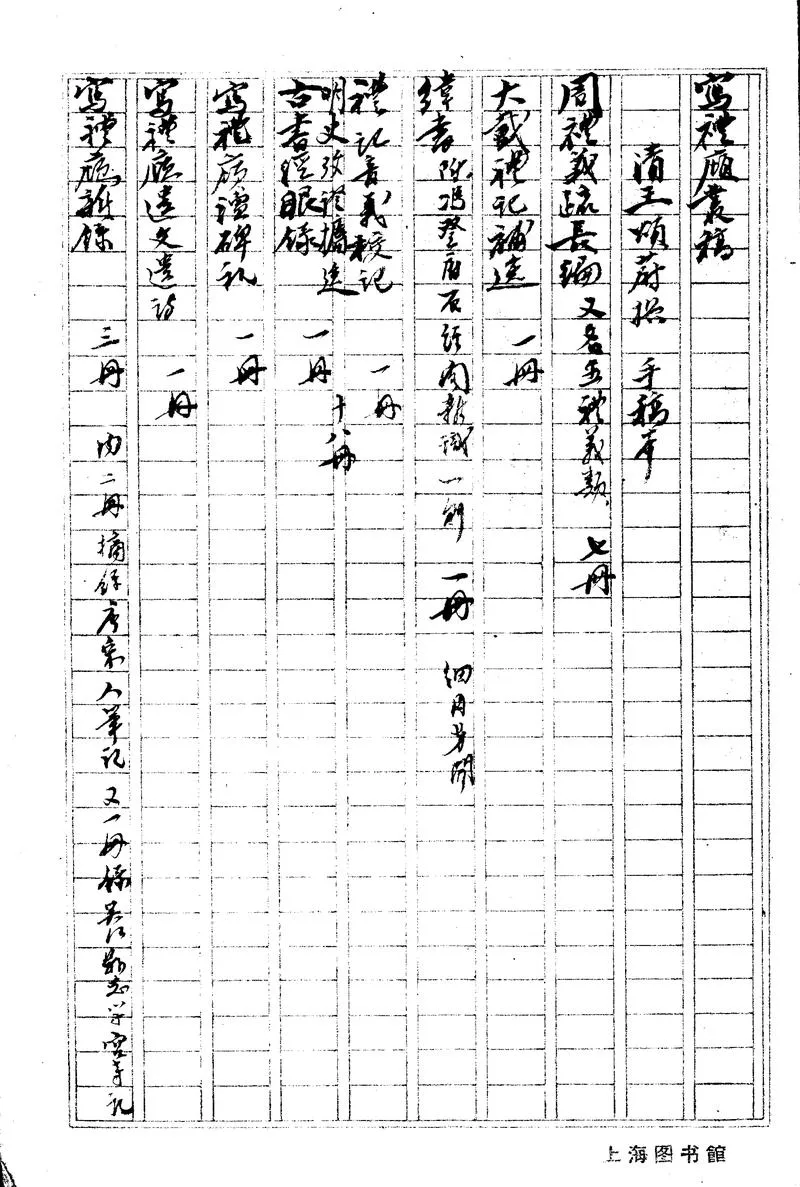 寫禮廎叢稿
清王頌蔚撰 手稿本
周禮義疏長編 又名五禮義類 七冊
大戴禮記補遺 一冊
緯書 附馮登府石經閣 識一則 一冊 細目另開
禮記音義校記 一冊
明史攷證攟逸 十八冊
古書經眼錄 一冊
寫禮廎讀碑記 一冊
寫禮廎遺文遺詩 一冊
寫禮廎雜錄 三冊 內二冊摘錄唐宋人筆記 又一冊錄吳江縣志學宮寺記
上海图书館